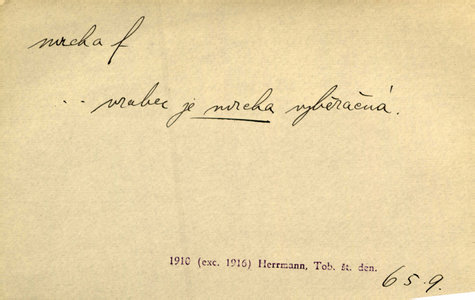 mrcha f
.. vrabec je mrcha vyběračná.
1910 (exc. 1916) Herrmann, Tob. št. den.
65.9.